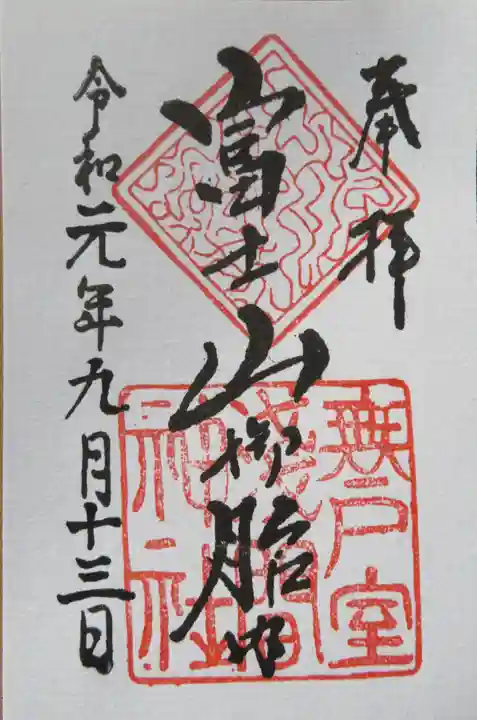 奉拝
富士山御胎内
令和元年九月十三日
無戸室
淺間
神社